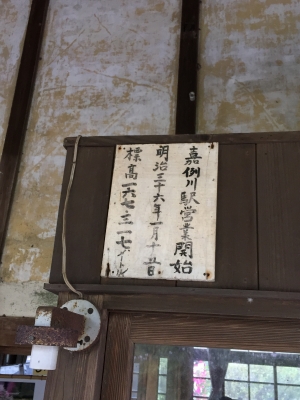 嘉例川駅営業開始
明治三十六年一月十五日
標高一六七三一七メートル